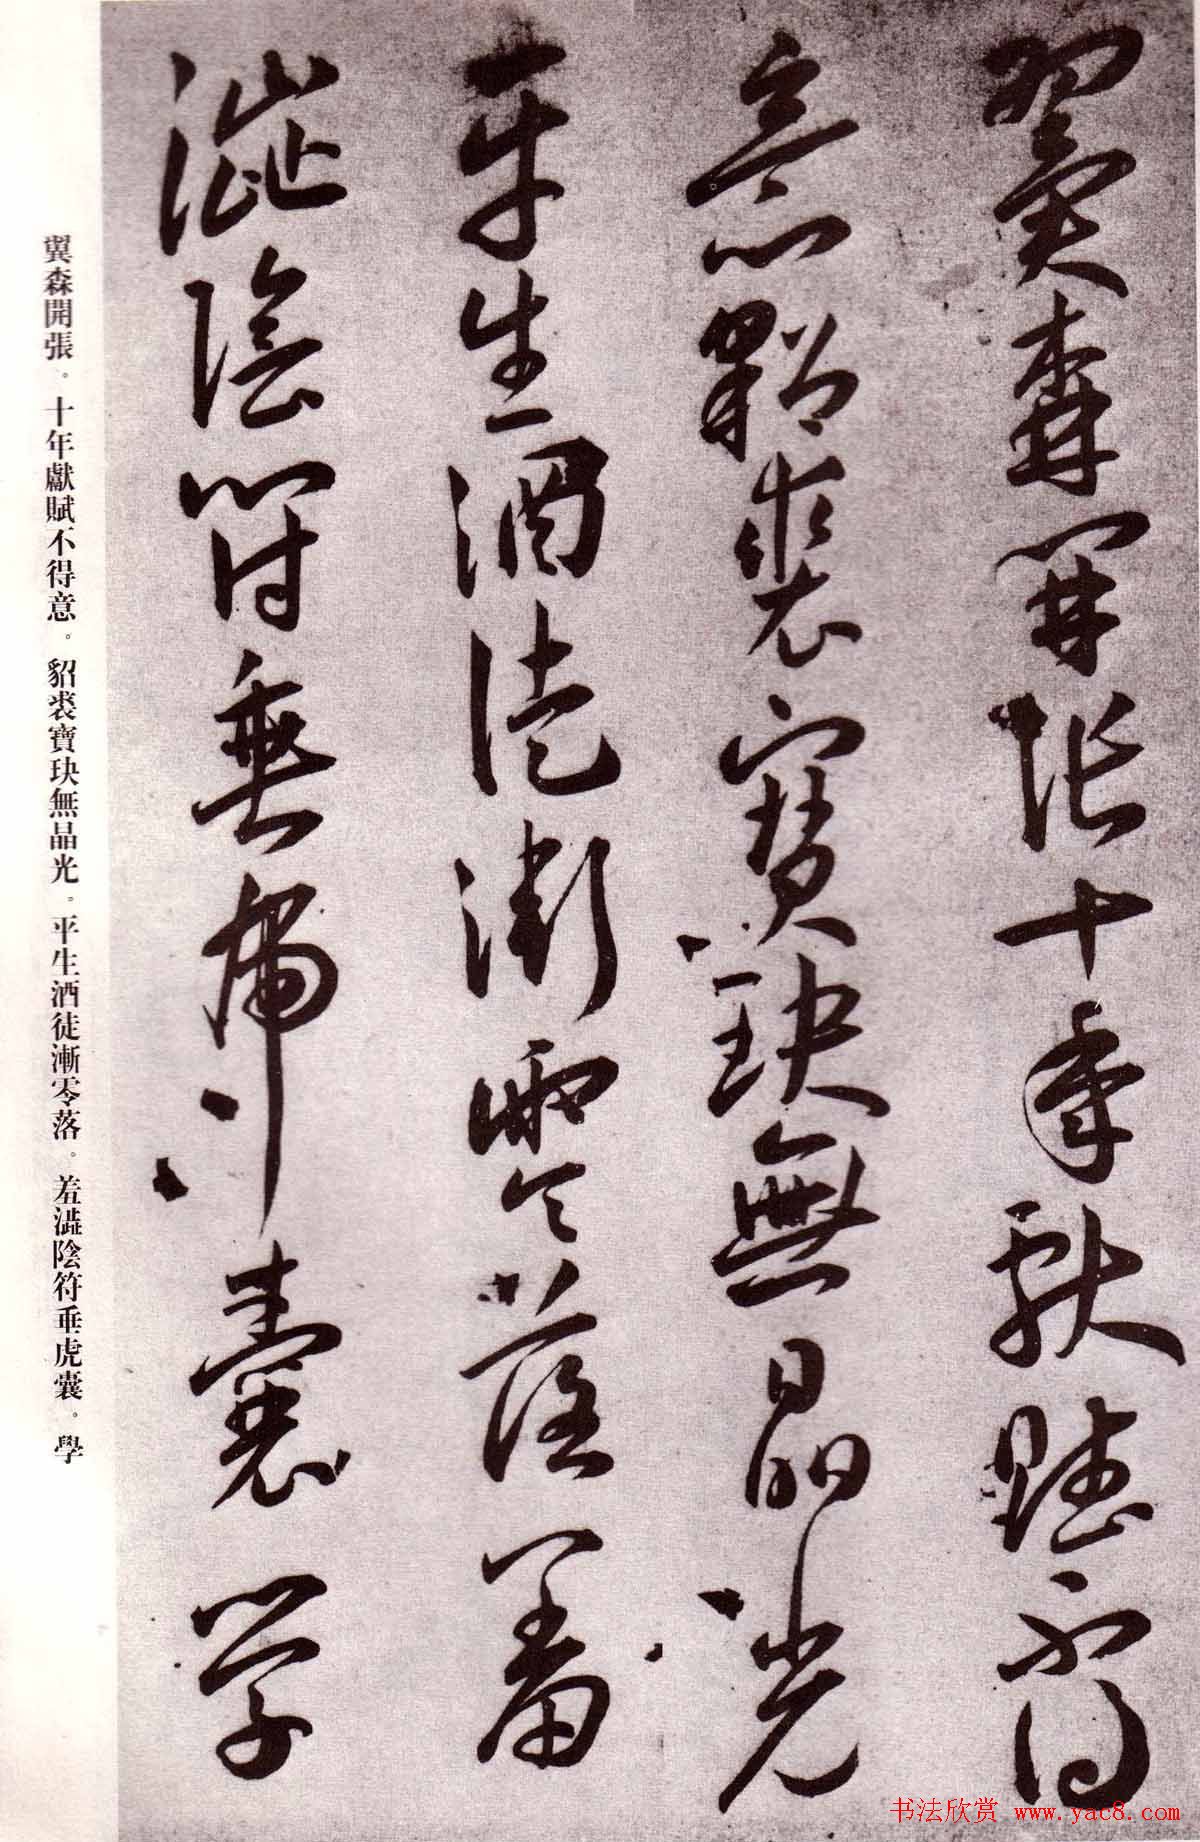 翼森開張十年獻賦不得
意貂裘寶玦無晶光
平生酒徒漸零落羞
澁陰符垂虎囊學
翼森開張。十年獻賦不得意。貂裘寶玦無晶光。平生酒徒漸零落。羞澁陰符垂虎囊。學
书法欣赏 www.yac8.com